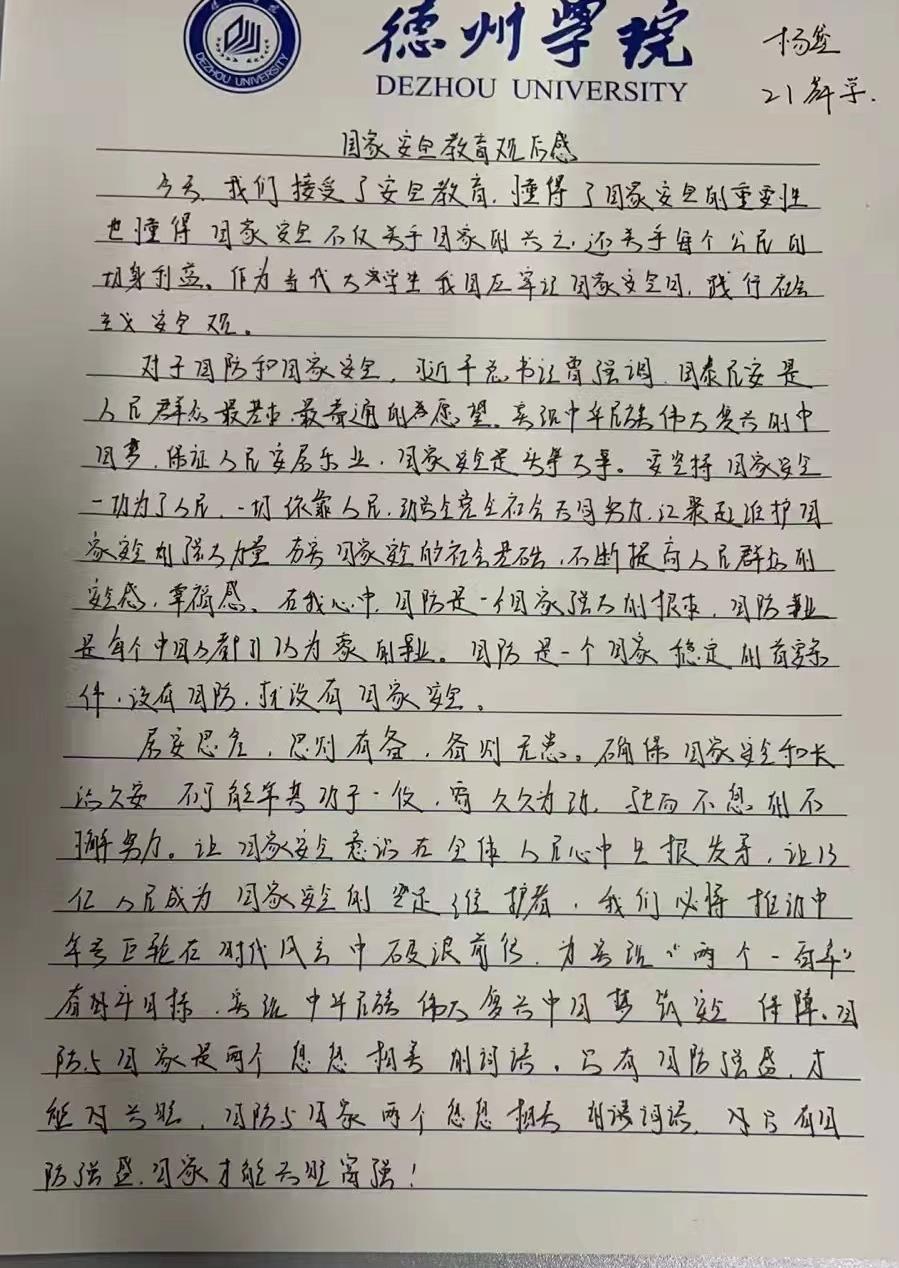 德州学院
DEZHOU UNIVERSITY
DEZHOU UNIVERSITY
杨
21 学.
国家安全教育观后感
今天,我们接受了安全教育,懂得了国家安全的重要性
也懂得 国家安全不仅关乎国家的兴亡,还关乎每个公民的
切身利益。作为当代大学生我国应牢记国家安全国,践行社会
主义安全观。
对于国防和国家安全,习近平总书记曾强调,国泰民安是
人民群众最基本、最普通的愿望。实现中华民族伟大复兴的中
国梦,保证人民安居乐业,国家安全是头等大事。要坚持国家安全
一切为了人民,一切依靠人民,动员全党全社会共同努力,汇聚起维护国
家安全的强大力量 夯实国家安全的社会基础,不断提高人民群众的
安全感,幸福感。在我心中,国防是一个国家强大的根本,国防事业
是每个中国人都引以为豪的事业。国防是一个国家稳定的首要条
件,没有国防,就没有国家安全。
居安思危,思则有备,备则无患。确保国家安全和长
治久安 不可能毕其功于一役,需久久为功,驰而不息的不
懈努力。让国家安全意识在全体人民心中生根发芽,让13
亿人民成为国家安全的坚定维护者,我们必将推动中
华号巨轮在时代风云中破浪前行,为实现“两个一百年”
有奋斗目标,实现中华民族伟大复兴中国梦 安全保障。国
防与国家是两个息息相关的词语。只有国防强盛,才
能 兴旺,国防与国家两个息息相关 词语, 只有国
防强盛,国家才能兴旺富强!